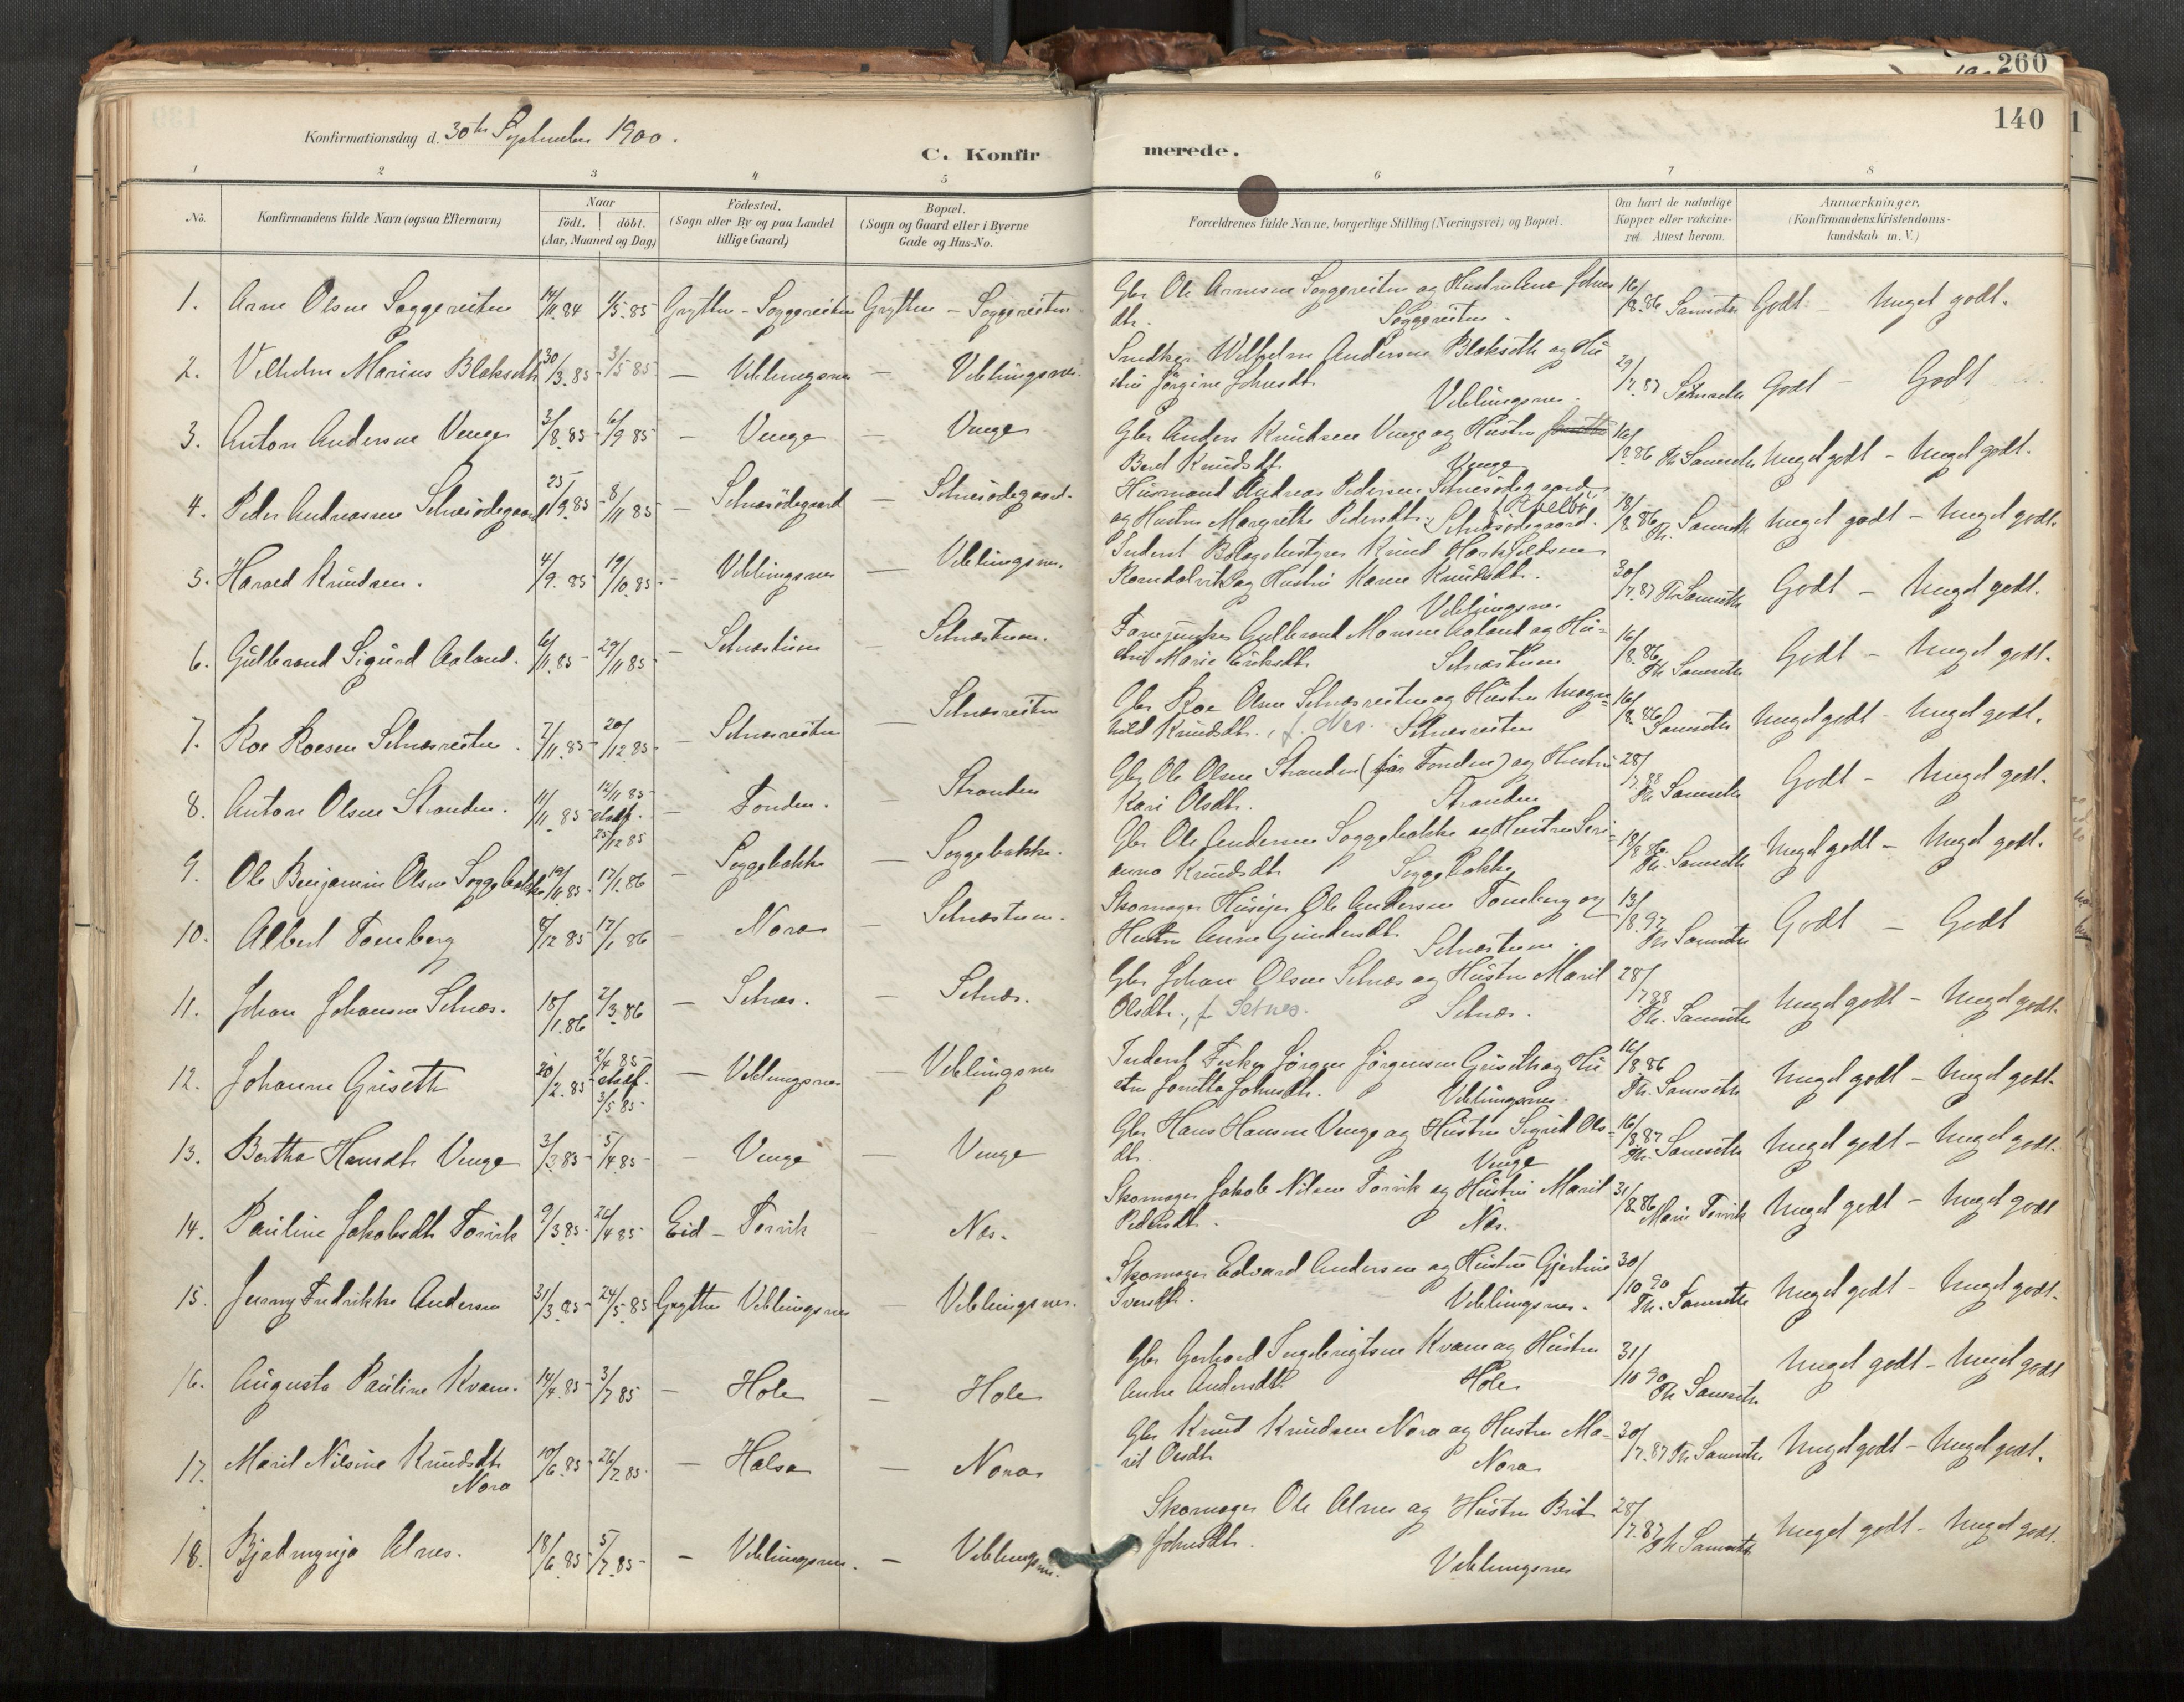 260
140
Konfirmationsdag d. 30te September 1900.
C. Konfirmerede.
1 2 3 4 5 6 7 8
No. Konfirmandens fulde Navn (ogsaa Efternavn) Naar födt. döbt. (Aar, Maaned og Dag) Födested. (Sogn eller By og paa Landet tillige Gaard) Bopæl. (Sogn og Gaard eller i Byerne Gade og Hus-No. Forældrenes fulde Navne, borgerlige Stilling (Næringsvei) og Bopæl. Om havt de naturlige Kopper eller vakcineret. Attest herom. Anmærkninger. (Konfirmandens Kristendomskundskab m.V.)
1. Arne Olsen Soggereiten 14/11.84 1/5.85 Grytten - Soggereiten Grytten - Soggereiten Gbr Ole Arnesen Soggereiten og Hustru Ane Johnsdtr. Soggereiten. 16/8.86 Samseth Godt - Meget godt.
2. Vilhelm Marius Blakseth 30/3.85 3/5 85 - Veblungsnes - Veblungsnes. Snedker Wilhelm Andersen Blakseth og Hustru Jørgine Johnsdt. Veblungsnes. 29/7.87 Samseth Godt - Godt
3. Anton Andersen Venge 3/8.85 6/9 85 - Venge - Venge Gbr Anders Knudsen Venge og Hustru Berel Knudsdt. Venge 16/8.86 Th Samseth Meget godt - Meget godt.
4. Peder Andreassen Setnesødegaard 25/9.85 8/11 85 - Setnesødegaard - Setnesødegaard. Husmand Andreas Pedersen Setnesødegaard og Hustru Margrethe Pedersdtr. Setnesødegaard. 18/8.86 Th. Samseth Meget godt - Meget godt.
5. Harald Knudsen. 4/9.85 19/10.85 - Veblungsnes - Veblungsnes. Inderst Knud Romdalvik og Hustru Karen Knudsdt. Veblungsnes 30/7.87 Th Samseth Godt - Meget godt.
6. Gulbrand Sigurd Aaland. 6/11.85 29/11 85 - Setnestuen - Setnestuen. Gulbrand Monsen Aaland og Hustru Marie Eriksdt. Setnestuen 16/8.86 Th Samseth Godt - Meget godt.
7. Roe Roesen Setnesreiten. 7/11.85 20/12 85 - Setnesreiten - Setnesreiten Gbr Roe Olsen Setnesreiten og Hustru Magnhild Knudsdt., f. Nes. Setnesreiten 16/8.86 Samseth Meget godt - Meget godt.
8. Anton Olsen Stranden. 11/11 85 12/11 85 stadf. 25/12 85 - Fonden. - Stranden Gbr Ole Olsen Stranden (før Fonden) og Hustru Kari Olsdt. Stranden 28/7 88 Th Samseth Godt - Meget godt.
9. Ole Benjamin Olsen Soggebakke 19/11.85 17/1.86 - Soggebakke - Soggebakke. Gbr Ole Andersen Soggebakke og Hustru Serianna Knudsdt. Soggebakke 18/8 86. Th. Samseth Meget godt - Meget godt.
10. Albert Tomberg 8/12 85 17/1 86 - Nora - Setnestuen. Skomager Husejer Ole Andersen Tomberg og Hustru Anne Gundersdt. Setnestuen. 13/8.97 Th Samseth Godt - Godt
11. Johan Johansen Setnes. 18/1.86 2/3.86 - Setnes. - Setnes. Gbr Johan Olsen Setnes og Hustru Marit Olsdtr., f Setnes. Setnes. 28/7 88 Th. Samseth Meget godt - Meget godt.
12. Johanne Griseth 20/2.85 2/4 85 stadf. 3/5 85 - Veblungsnes - Veblungsnes Inderst Fisker Jørgen Jørgensen Griseth og Hustru Jonetta Johnsdt. Veblungsnes. 16/8.86 Th. Samseth Meget godt - Meget godt.
13. Bertha Hansdt. Venge 3/3.85 5/4 85 - Venge - Venge Gbr Hans Hansen Venge og Hustru Sigrid Olsdt. Venge 16/8.87 Th. Samseth Meget godt - Meget godt.
14. Pauline Jakobsdt. Torvik 9/3.85 26/4 85 Eid - Torvik - Nes. Skomager Jakob Nilsen Torvik og Hustru Marit Pedersdt. Nes. 31/8.86 Marie Torvik Meget godt - Meget godt
15. Jenny Fredrikke Andersen 31/3.85 24/5.85 Grytten Veblungsnes - Veblungsnes. Skomager Edvard Andersen og Hustru Gjertine Iversdt. Veblungsnes. 30/10 90 Th. Samseth Meget godt - Meget godt.
16. Augusta Pauline Kvam. 14/4.85 3/7 85 - Hole - Hole Gbr Gerhard Ingebrigtsen Kvam og Hustru Anne Andersdt. Hole 31/10 90 Th Samseth Meget godt - Meget godt
17. Marit Nilsine Knudsdt. Nora 10/6.85 26/7.85 - Halsa - Nora Gbr Knud Knudsen Nora og Hustru Marit Olsdt. Nora 30/7.87 Th Samseth Meget godt - Meget godt.
18. Bjadmynja Alnes. 18/6.85 5/7.85 - Veblungsnes. - Veblungsnes. Skomager Ole Alnes og Hustru Brit Johnsdt. Veblungsnes 28/7.87 Th Samseth Meget godt - Meget godt.